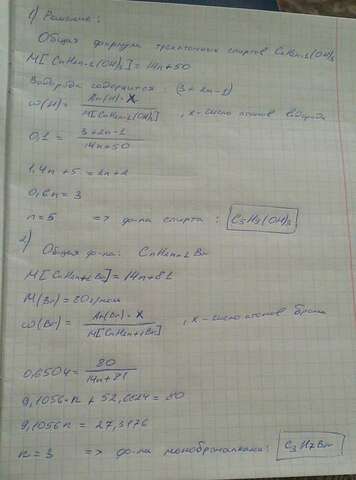 1) Решение:
Общая формула трехатомных спиртов CnH2n-1(OH)3
M[CnH2n-1(OH)3] = 14n+50
Водорода содержится: (3+2n-1)
ω(H) = Ar(H)·X / M[CnH2n-1(OH)3] , x-число атомов водорода
0,1 = 3+2n-1 / 14n+50
1,4n+5=2n+2
0,6n=3
n=5 => ф-ла спирта: C5H9(OH)3
2)
Общая ф-ла: CnH2n+1Br
M[CnH2n+1Br]=14n+81
M(Br)=80г/моль
ω(Br) = Ar(Br)·X / M[CnH2n+1Br] , x-число атомов брома
0,6504 = 80 / 14n+81
9,1056·n + 52,6824 = 80
9,1056n = 27,3176
n=3 => ф-ла монобромалкана: C3H7Br